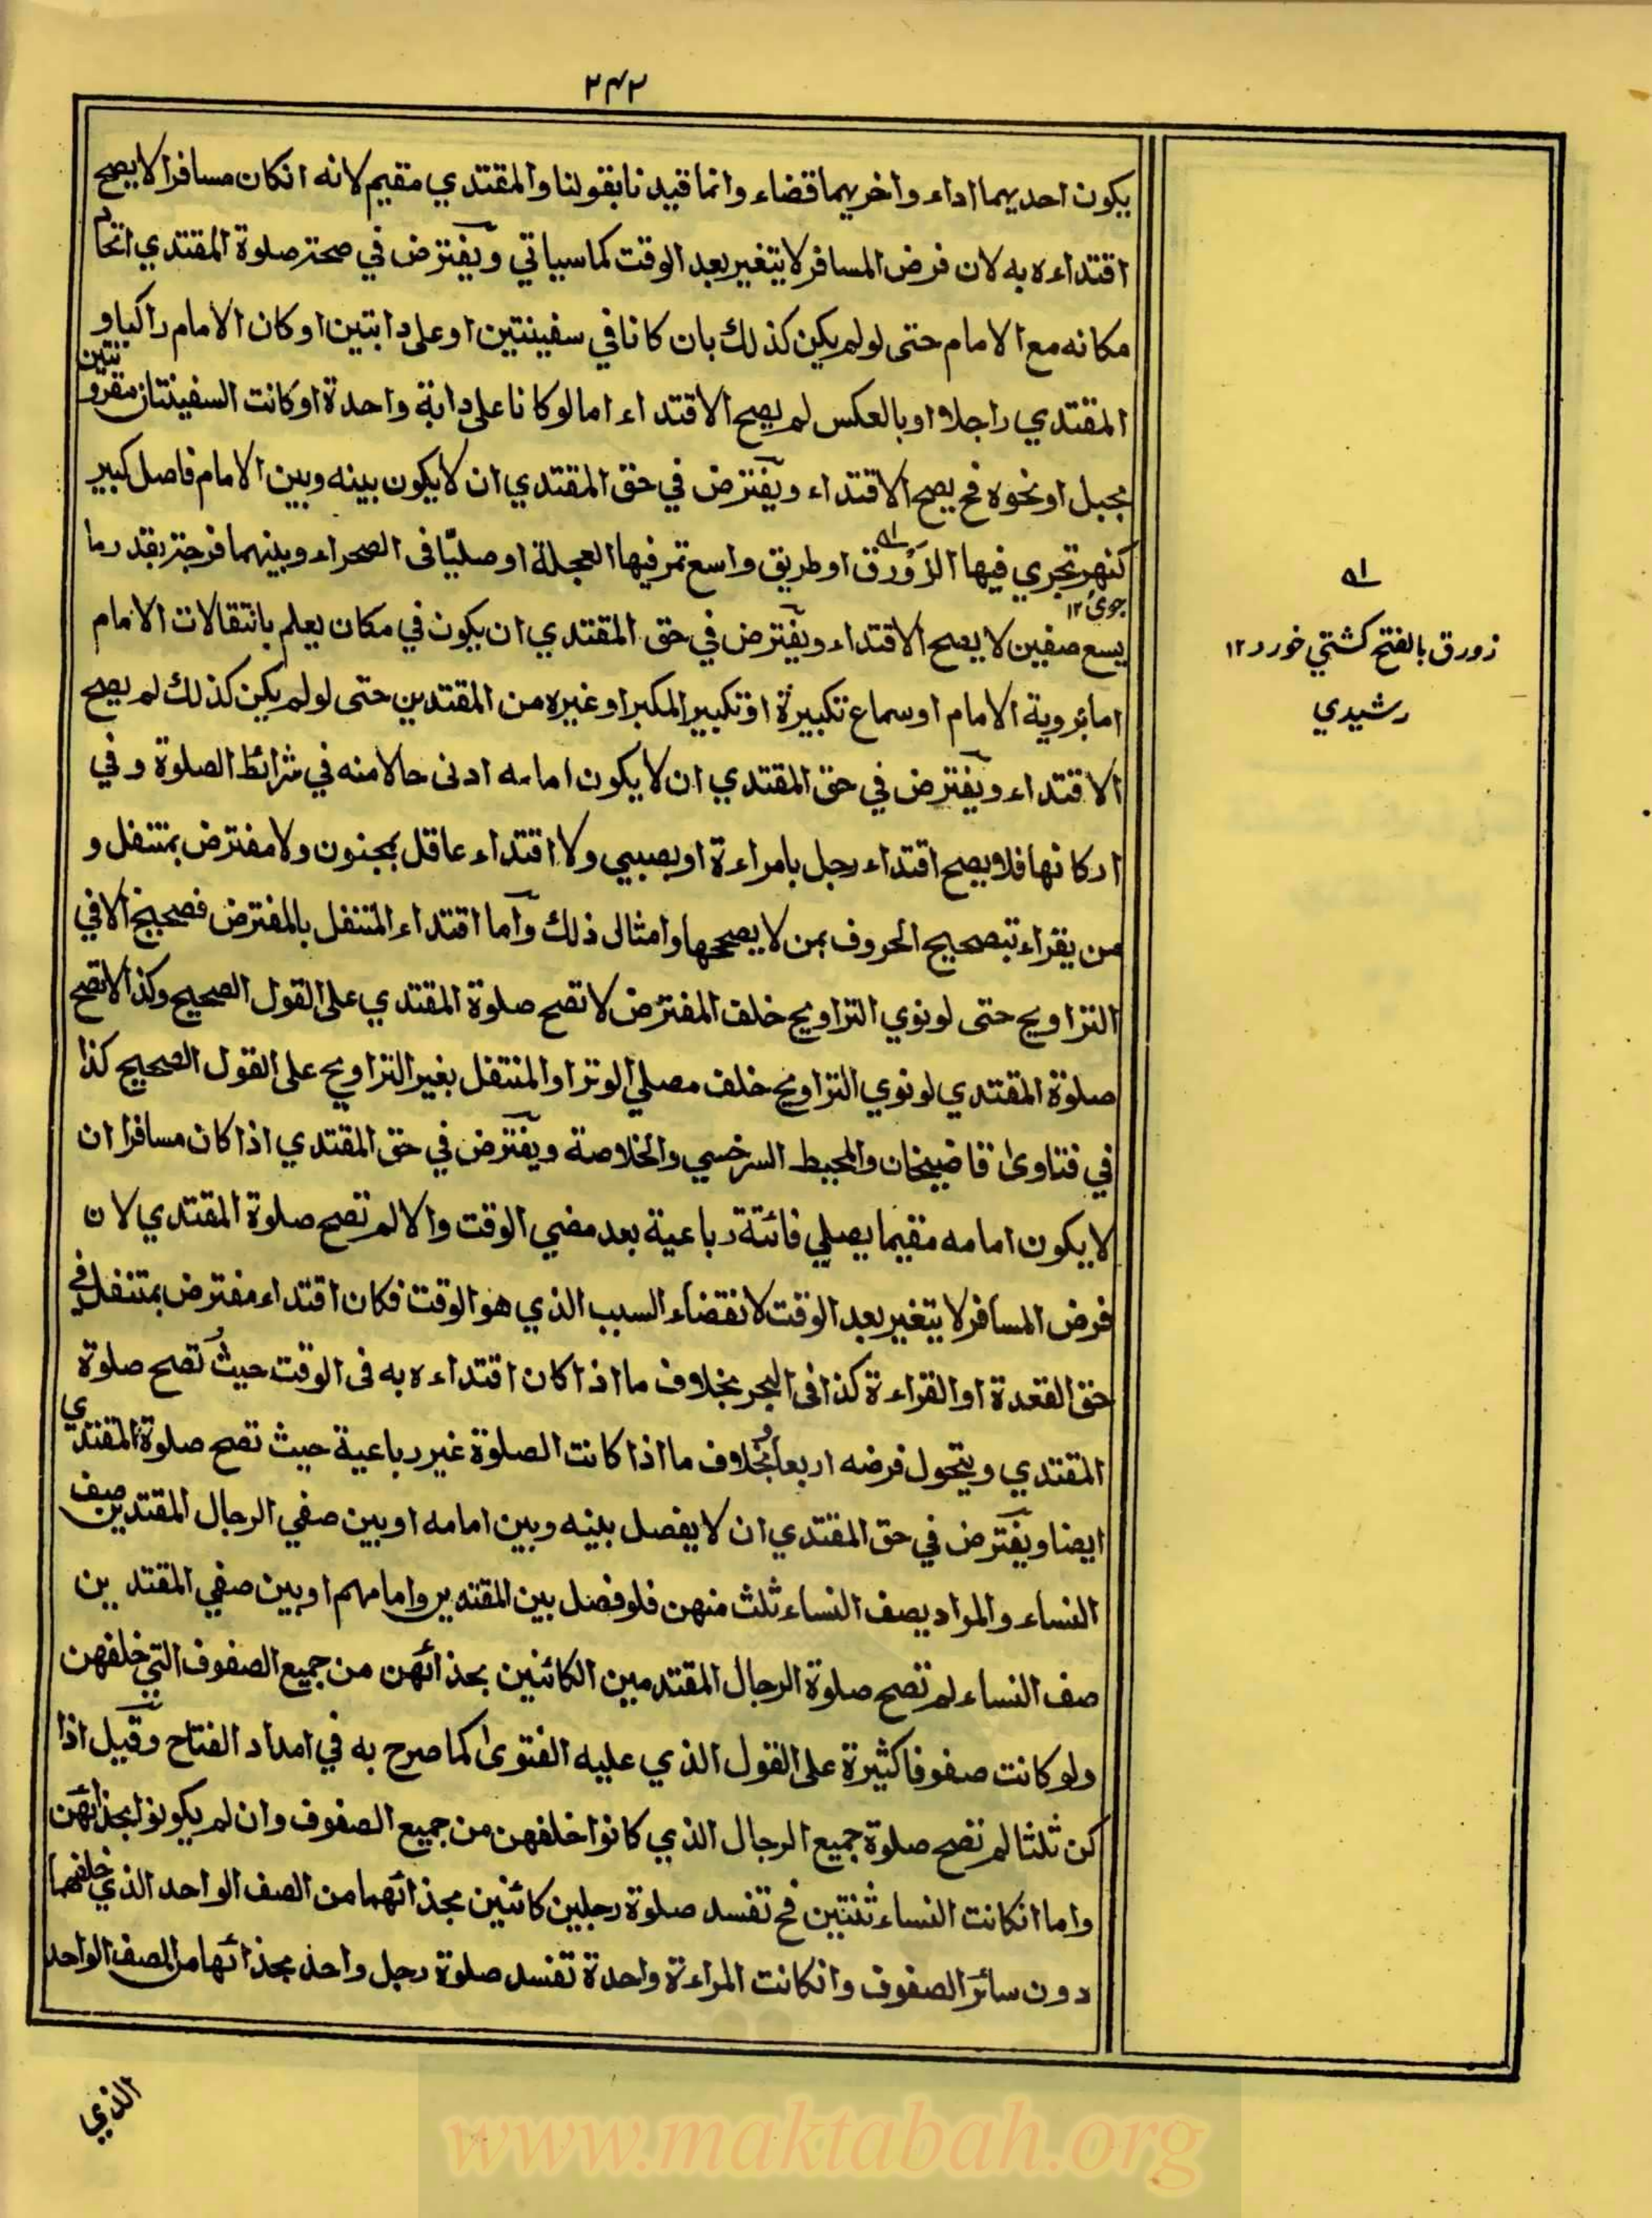 ۲۴۲
يكون احديهما اداء واخريهما قضاء وانما قيدنا بقولنا والمقتدي مقيم لانه انكان مسافرا لايصح
اقتداءه به لان فرض المسافر لايتغير بعد الوقت كما سياتي ويفترض في صحة صلوة المقتدي اتحاد
مكانه مع الامام حتى لو لم يكن كذلك بان كانا في سفينتين او على دابتين او كان الامام راكبا و
المقتدي راجلا او بالعكس لم يصح الاقتداء اما لو كانا على دابة واحدة او كانت السفينتان مقرونتين
بحبل او نحوه فح يصح الاقتداء ويفترض في حق المقتدي ان لايكون بينه وبين الامام فاصل كبير
كنهر تجري فيها الزورق او طريق واسع تمر فيها العجلة او صليا فى الصحراء وبينهما فرجة بقدر ما
جوى ١٢
يسع صفين لا يصح الاقتداء ويفترض في حق المقتدي ان يكون في مكان يعلم بانتقالات الامام
اما بروية الامام او سماع تكبيرة او تكبير المكبر او غيره من المقتدين حتى لو لم يكن كذلك لم يصح
الاقتداء ويفترض في حق المقتدي ان لا يكون امامه ادنى حالا منه في شرائط الصلوة وفي
اركانها فلا يصح اقتداء رجل بامراءة او بصبي ولا اقتداء عاقل بمجنون ولا مفترض بمتنفل و
من يقراء بتصحيح الحروف بمن لا يصححها وامثالى ذلك وآما اقتداء المتنفل بالمفترض فصحيح الافي
التراويح حتى لو نوي التراويح خلف المفترض لا تصح صلوة المقتدي على القول الصحيح وكذا لاتصح
صلوة المقتدي لو نوي التراويح خلف مصلي الوتر او المتنفل بغير التراويح على القول الصحيح كذا
في فتاوى قاضيخان والمحيط السرخسي والخلاصة ويفترض في حق المقتدي اذا كان مسافرا ان
لا يكون امامه مقيما يصلي فائتة رباعية بعد مضي الوقت والا لم تصح صلوة المقتدي لان
فرض المسافر لا يتغير بعد الوقت لانقضاء السبب الذي هو الوقت فكان اقتداء مفترض بمتنفل في
حق القعدة او القراءة كذا فى البحر بخلاف ما اذا كان اقتداءه به فى الوقت حيث تصح صلوة
المقتدي ويتحول فرضه اربعا وبخلاف ما اذا كانت الصلوة غير رباعية حيث تصح صلوة المقتدي
ايضا ويفترض في حق المقتدي ان لا يفصل بينه وبين امامه او بين صفي الرجال المقتدين صف
النساء والمراد بصف النساء ثلث منهن فلو فصل بين المقتدين وامامهم او بين صفي المقتدين
صف النساء لم تصح صلوة الرجال المقتدمين الكائنين بحذائهن من جميع الصفوف التي خلفهن
ولو كانت صفوفا كثيرة على القول الذي عليه الفتوى كما صرح به في امداد الفتاح وقيل اذا
كن ثلثا لم تصح صلوة جميع الرجال الذي كانوا خلفهن من جميع الصفوف وان لم يكونوا بحذائهن
واما انكانت النساء ثنتين فح تفسد صلوة رجلين كائنين بحذائهما من الصف الواحد الذي خلفهما
دون سائر الصفوف وانكانت المراءة واحدة تفسد صلوة رجل واحد بحذائها من الصف الواحد
الذي
زورق بالفتح كشتي خورد ١٢
رشيدي
www.maktabah.org